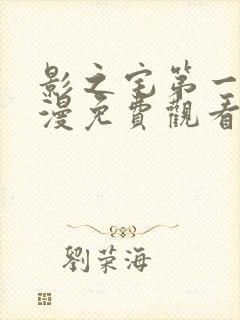 影之宅第一
漫免費觀看
劉荣海